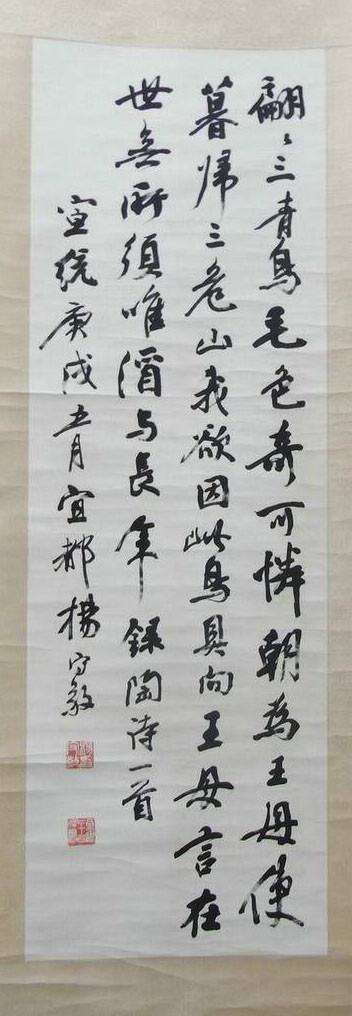 翩〻三青鳥毛色奇可憐朝為王母使
暮歸三危山我欲因此鳥具向王母言在
世無所須唯酒与長年錄陶詩一首
宣統庚戌五月宜都楊守敬